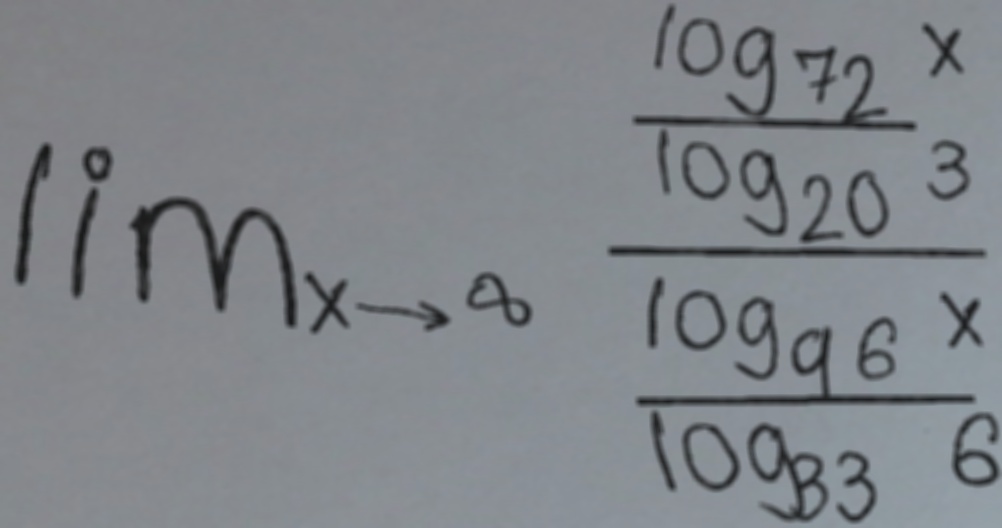 lim x→∞
log 72 x
log 20 3
log 96 x
log 33 6